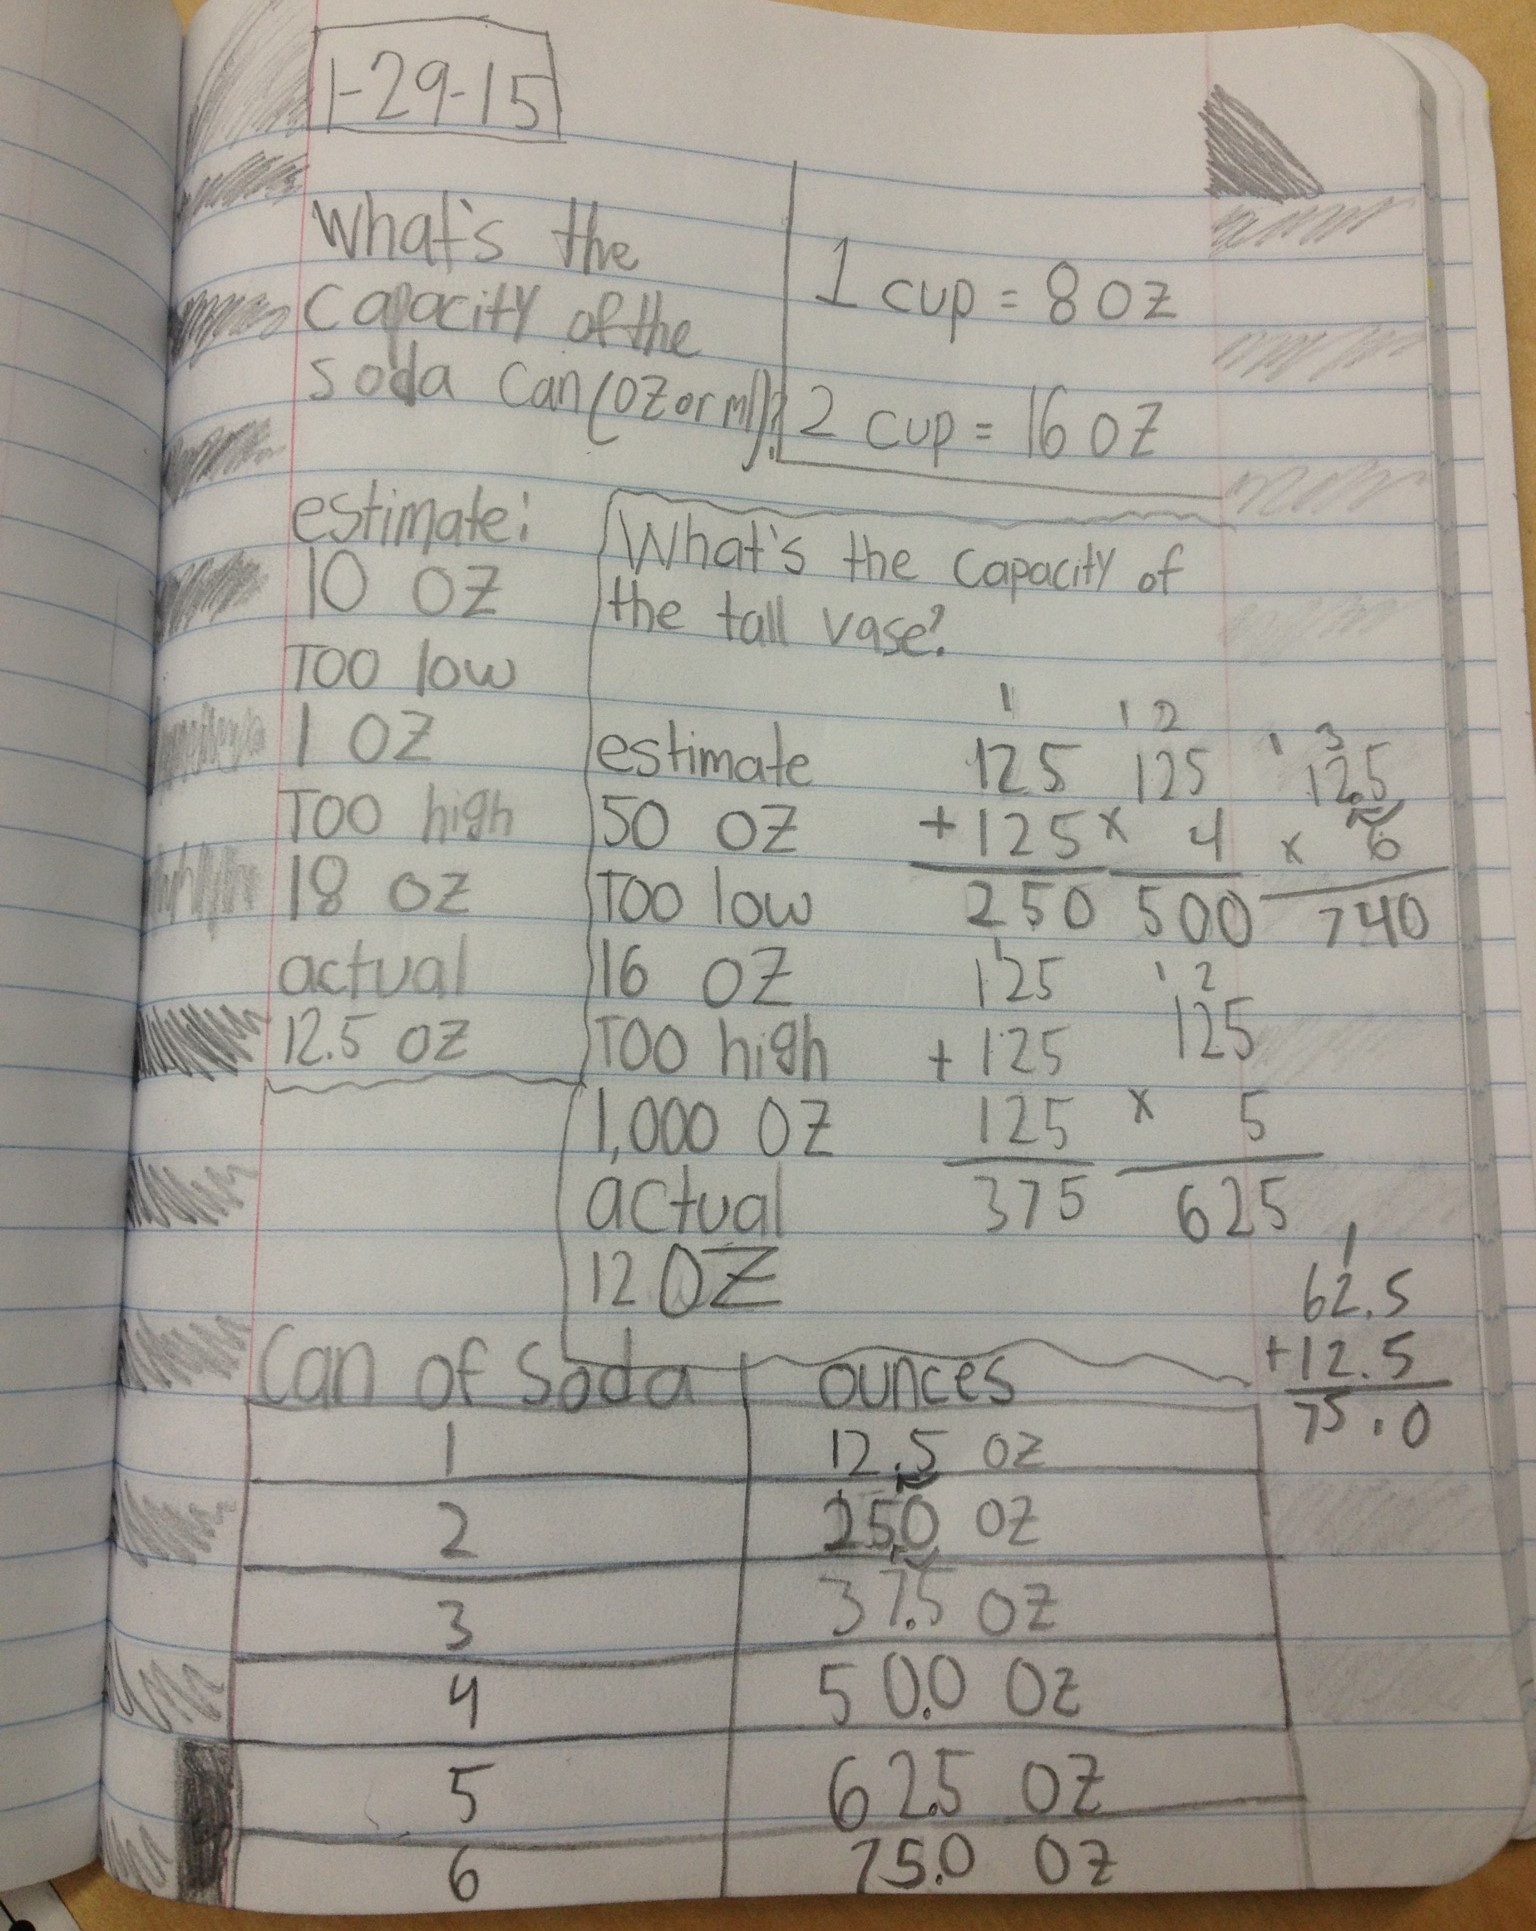 1-29-15
What's the
capacity of the
soda can (oz or ml)?
1 cup = 8 oz
2 cup = 16 oz
estimate:
10 oz
Too low
1 oz
Too high
18 oz
actual
12.5 oz
What's the capacity of
the tall vase?
estimate
50 oz
Too low
16 oz
Too high
1,000 oz
actual
12 oz
1
125
+125
250
1 2
125
x 4
500
1 3
12.5
x 6
740
1
125
+ 125
125
375
1 2
125
x 5
625
1
62.5
+12.5
75.0
Can of Soda ounces
1 12.5 oz
2 25.0 oz
3 37.5 oz
4 50.0 oz
5 62.5 oz
6 75.0 oz